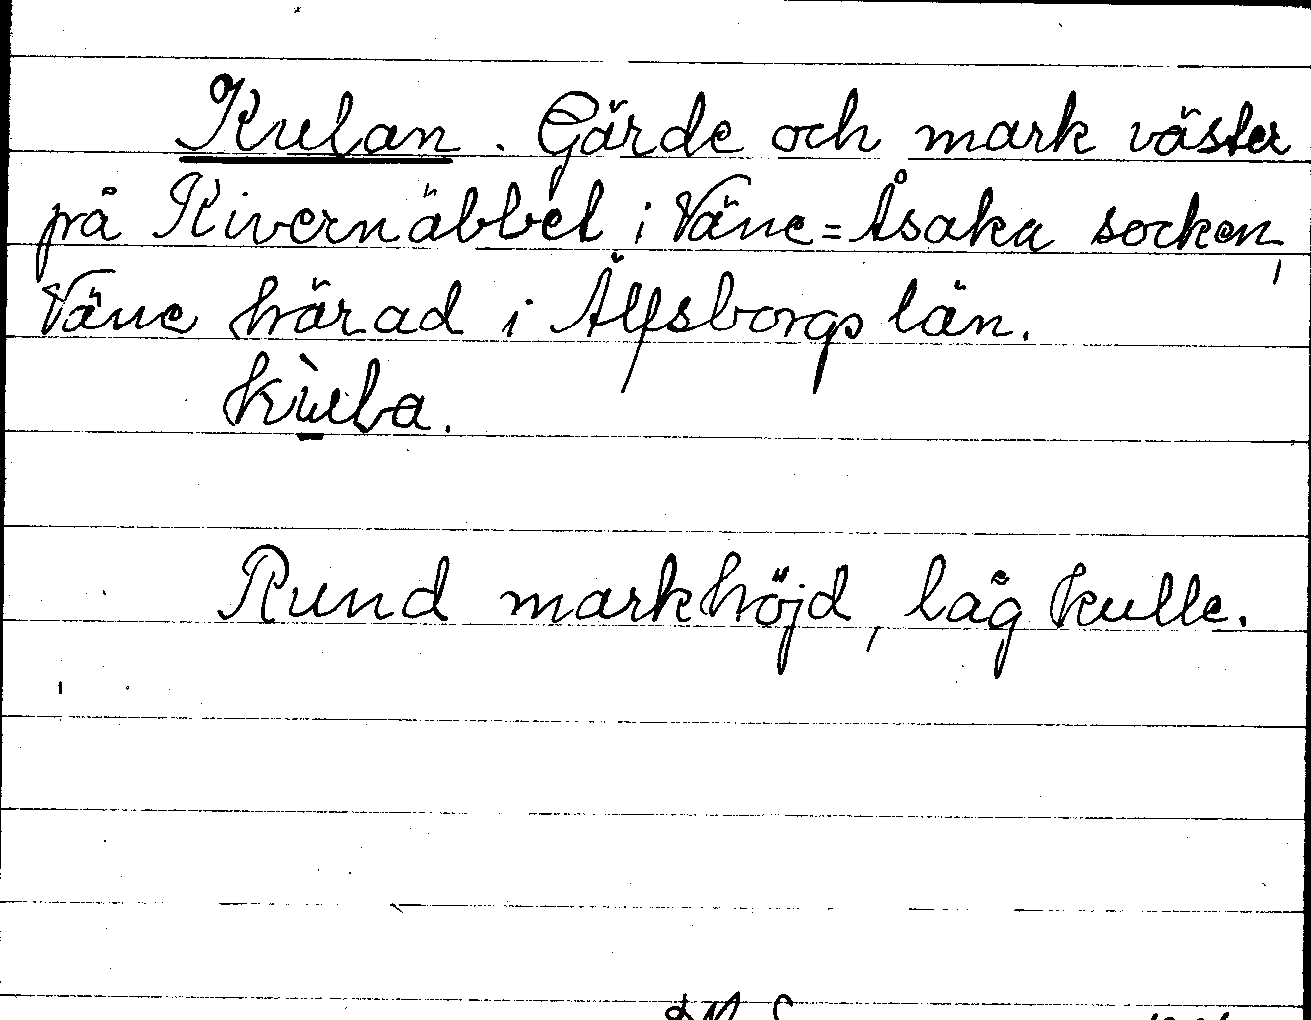 Kulan. Gärde och mark väster
på Kivernäbbel i Väne=Åsaka socken,
Väne härad i Älfsborgs län.
kùla.
Rund markhöjd, låg kulle.